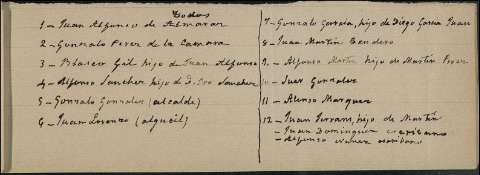 Todos
1 - Juan Alfonso de Almaraz
2 - Gonzalo Perez de la Camara
3 - Blasco Gil hijo de Juan Alfonso
4 - Alfonso Sanchez hijo de D. Sanchez
5 - Gonzalo Gonzalez (alcalde)
6 - Juan Lorenzo (alguacil)
7 - Gonzalo Garcia, hijo de Diego Garcia Juan
8 - Juan Martin Tendero
9 - Alfonso Martin hijo de Martin Perez
10 - Juez Gonzalez
11 - Alonso Marquez
12 - Juan Ferrans, hijo de Martin
- Juan Dominguez escribano
- Alfonso escribano